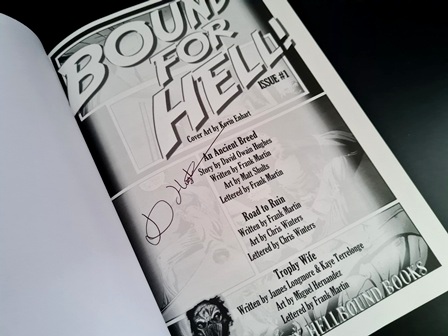 BOUND
FOR
HELL!
ISSUE #1
Cover Art by Kevin Enhart
An Ancient Breed
Story by David Owain Hughes
Written by Frank Martin
Art by Matt Shults
Lettered by Frank Martin
Road to Ruin
Written by Frank Martin
Art by Chris Winters
Lettered by Chris Winters
Trophy Wife
Written by James Longmore & Kaye Terrelonge
Art by Miguel Hernandez
Lettered by Frank Martin
HELLBOUND BOOKS